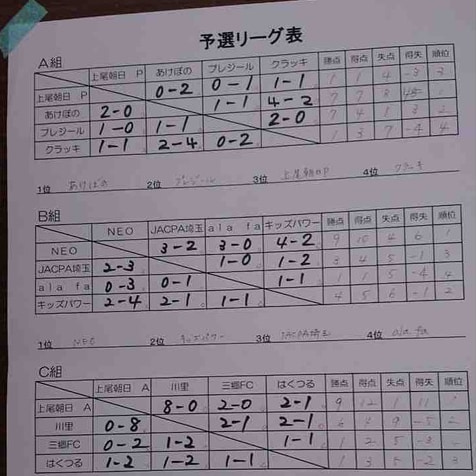 予選リーグ表
A組
上尾朝日 P あけぼの プレジール クラッキ 勝点 得点 失点 得失 順位
上尾朝日 P 0-2 0-1 1-1 1 1 4 -3 3
あけぼの 2-0 1-1 4-2 7 7 3
プレジール 1-0 1-1 2-0 7 4 1 3 2
クラッキ 1-1 2-4 0-2 1 3 7 -4 4
1位 あけぼの 2位 プレジール 3位 上尾朝日P 4位 クラッキ
B組
NEO JACPA埼玉 ala fa キッズパワー 勝点 得点 失点 得失 順位
NEO 3-2 3-0 4-2 9 10 4 6 1
JACPA埼玉 2-3 1-0 1-2 3 4 5 -1 3
ala fa 0-3 0-1 1-1 1 1 5 -4 4
キッズパワー 2-4 2-1 1-1 4 5 6 -1 2
1位 NEO 2位 キッズパワー 3位 JACPA埼玉 4位 ala fa
C組
上尾朝日 A 川里 三郷FC はくつる 勝点 得点 失点 得失 順位
上尾朝日 A 8-0 2-0 2-1 9 12 1 11 1
川里 0-8 2-1 2-1 6 4 9 -5 2
三郷FC 0-2 1-2 1-1 1 2 5 -3
はくつる 1-2 1-2 1-1 1 3 5 -2 3